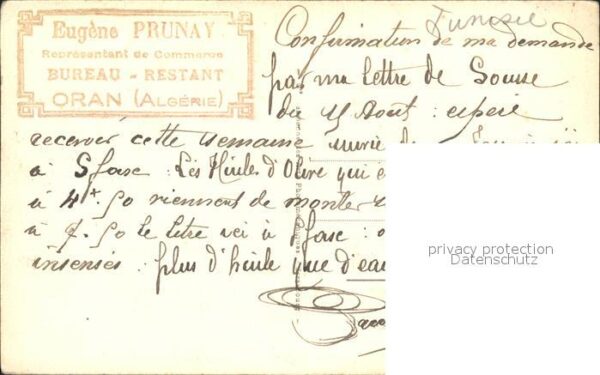 Eugène PRUNAY
Représentant de Commerce
BUREAU - RESTANT
ORAN (ALGÉRIE)
Tunisie
Confirmation de ma demande
par ma lettre de Sousse
du 4 Août : espère
recevoir cette semaine
à Sfax : Les Huiles d'Olive qui
à 4 f 50 viennent de monter
à 7. 50 le litre ici à Sfax :
insensés : plus d'huile que d'eau
privacy protection
Datenschutz